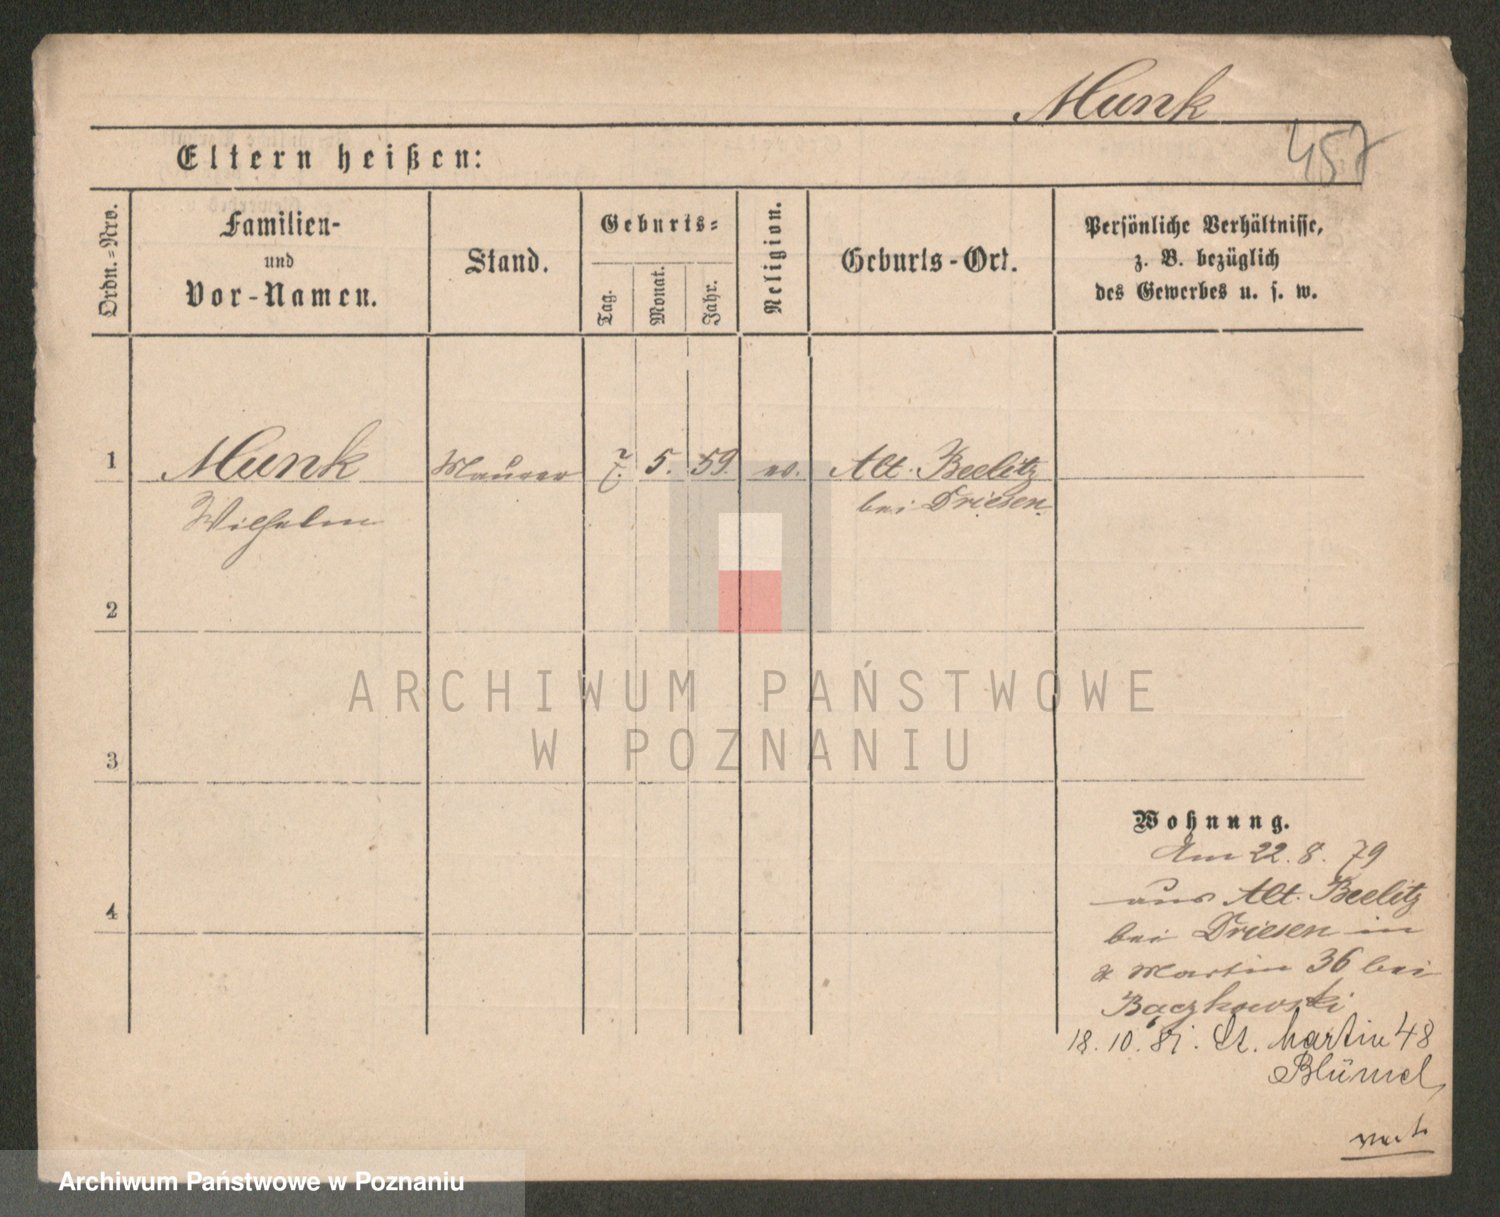 Munk
457
Eltern heißen:
Ordn.-Nro.
Familien-
und
Vor-Namen.
Stand.
Geburts-
Tag.
Monat.
Jahr.
Religion.
Geburts-Ort.
Persönliche Verhältnisse,
z. B. bezüglich
des Gewerbes u. s. w.
1 Munk Maurer 5. 59. ev. Alt. Beelitz
Wilhelm bei Driesen.
2
3
4
Wohnung.
Am 22. 8. 79
aus Alt. Beelitz
bei Driesen in
St Martin 36 bei
Bączkowski
18. 10. 81. St. Martin 48
Blümel
ARCHIWUM PAŃSTWOWE
W POZNANIU
Archiwum Państwowe w Poznaniu